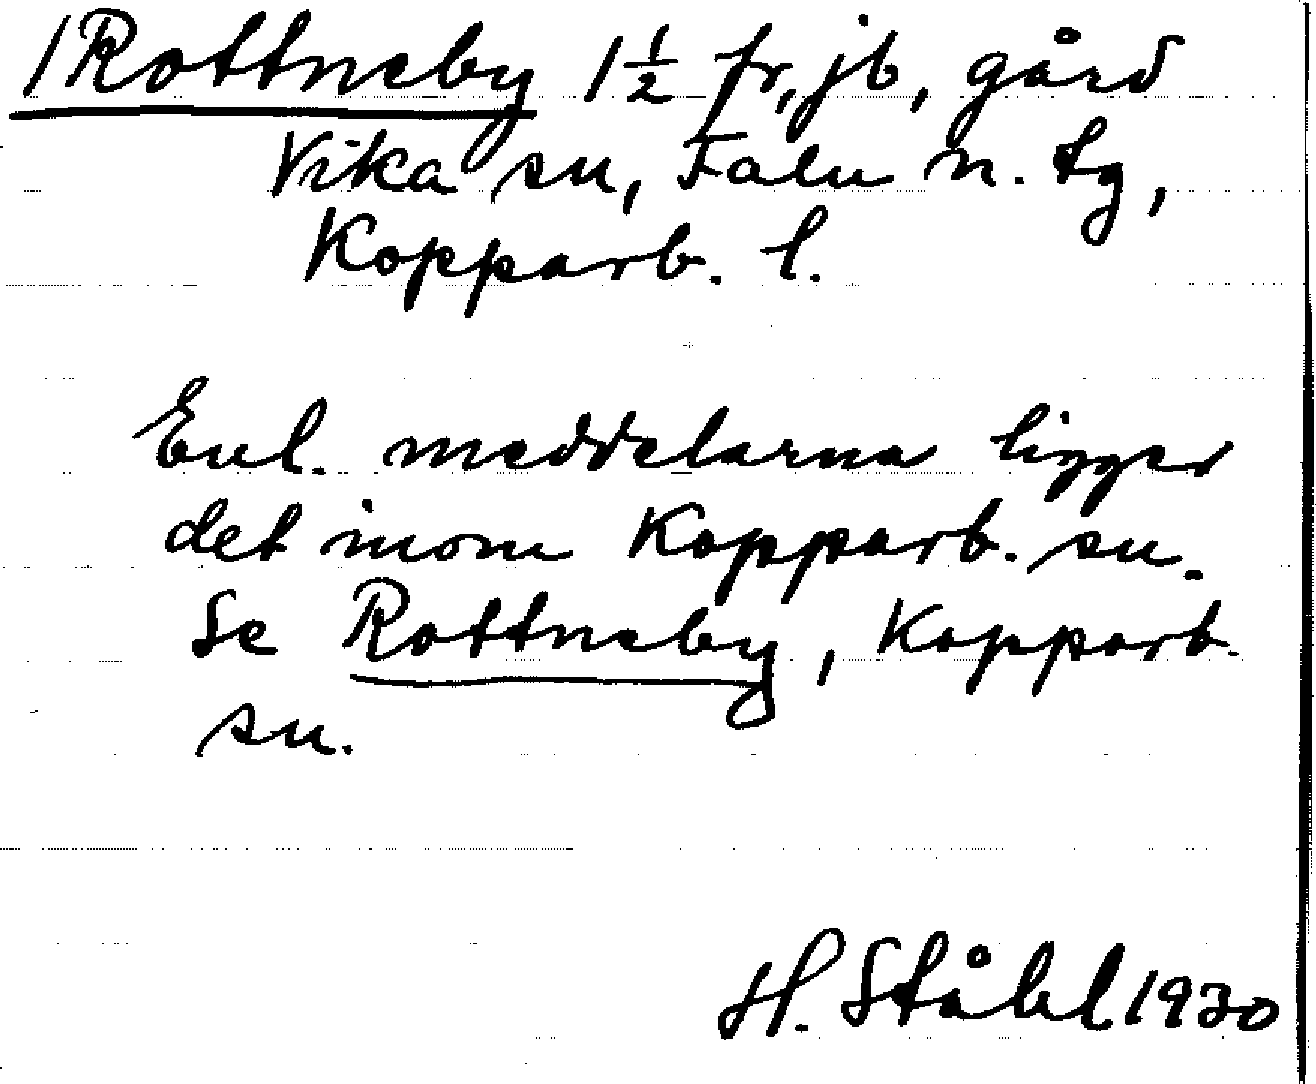 /Rottneby 1 1/2 fr, jb, gård
Vika sn, Falu n. tg,
Kopparb. l.
Enl. meddelarna ligger
det inom Kopparb. sn.
Se Rottneby, Kopparb.
sn.
H. Ståhl 1930